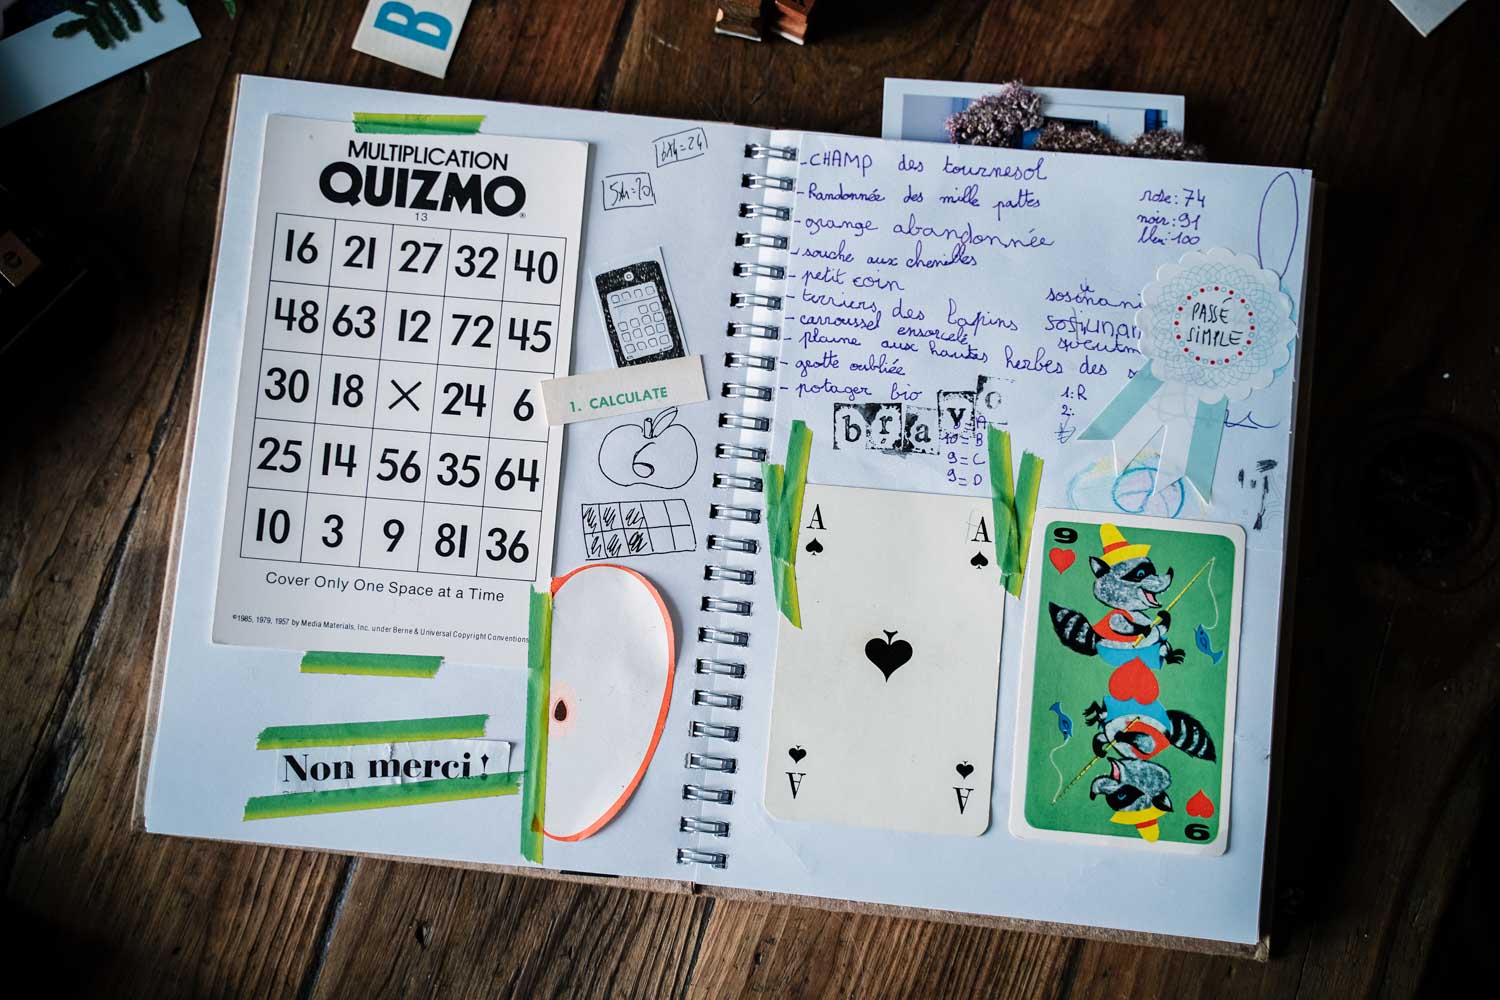 B
MULTIPLICATION
QUIZMO®
13
16 21 27 32 40
48 63 12 72 45
30 18 × 24 6
25 14 56 35 64
10 3 9 81 36
Cover Only One Space at a Time
©1985, 1979, 1957 by Media Materials, Inc. under Berne & Universal Copyright Conventions
Non merci !
6x4=24
1. CALCULATE
6
- CHAMP des tournesol
- Randonnée des mille pattes
- orange abandonnée
- souche aux chenilles
- petit coin
- terriers des lapins
- carroussel ensorcelé
- plaine aux hautes herbes des
- grotte oubliée
- potager bio
rose: 74
noir: 91
bleu: 100
PASSÉ
SIMPLE
1: R
2:
bravo
A
10 = B
9 = C
9 = D
A A
A A
9
9